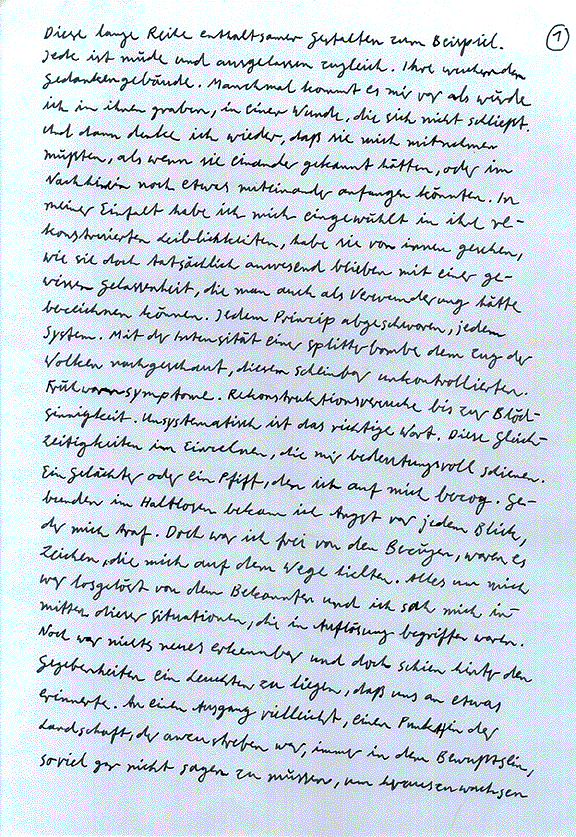 Diese lange Reihe enthaltsamer Gestalten zum Beispiel.
1
Jede ist müde und ausgelassen zugleich. Ihre wuchernden
Gedankengebäude. Manchmal kommt es mir vor als würde
ich in ihnen graben, in einer Wunde, die sich nicht schließt.
Und dann denke ich wieder, daß sie mich mitnehmen
müßten, als wenn sie einander gekannt hätten, oder im
Nachhinein noch etwas miteinander anfangen könnten. In
meiner Einfalt habe ich mich eingewühlt in ihre re-
konstruierten Leiblichkeiten, habe sie von innen gesehen,
wie sie doch tatsächlich anwesend blieben mit einer ge-
wissen Gelassenheit, die man auch als Verwunderung hätte
bezeichnen können. Jedem Prinzip abgeschworen, jedem
System. Mit der Intensität einer Splitterbombe dem Zug der
Wolken nachgeschaut, diesem scheinbar unkontrollierten.
Frühwarnsymptome. Rekonstruktionsversuche bis zur Blöd-
sinnigkeit. Unsystematisch ist das richtige Wort. Diese Gleich-
zeitigkeiten im Einzelnen, die mir bedeutungsvoll schienen.
Ein Gelächter oder ein Pfiff, den ich auf mich bezog. Ge-
bunden im Haltlosen bekam ich Angst vor jedem Blick,
der mich traf. Doch war ich frei von den Bezügen, waren es
Zeichen, die mich auf dem Wege hielten. Alles um mich
war losgelöst von dem Bekannten und ich sah mich in-
mitten dieser Situationen, die in Auflösung begriffen waren.
Noch war nichts neues erkennbar und doch schien hinter den
Gegebenheiten ein Leuchten zu liegen, daß uns an etwas
erinnerte. An einen Ausgang vielleicht, einen Punkt in der
Landschaft, der anzustreben war, immer in dem Bewußtsein,
soviel gar nicht sagen zu müssen, um herauszuwachsen